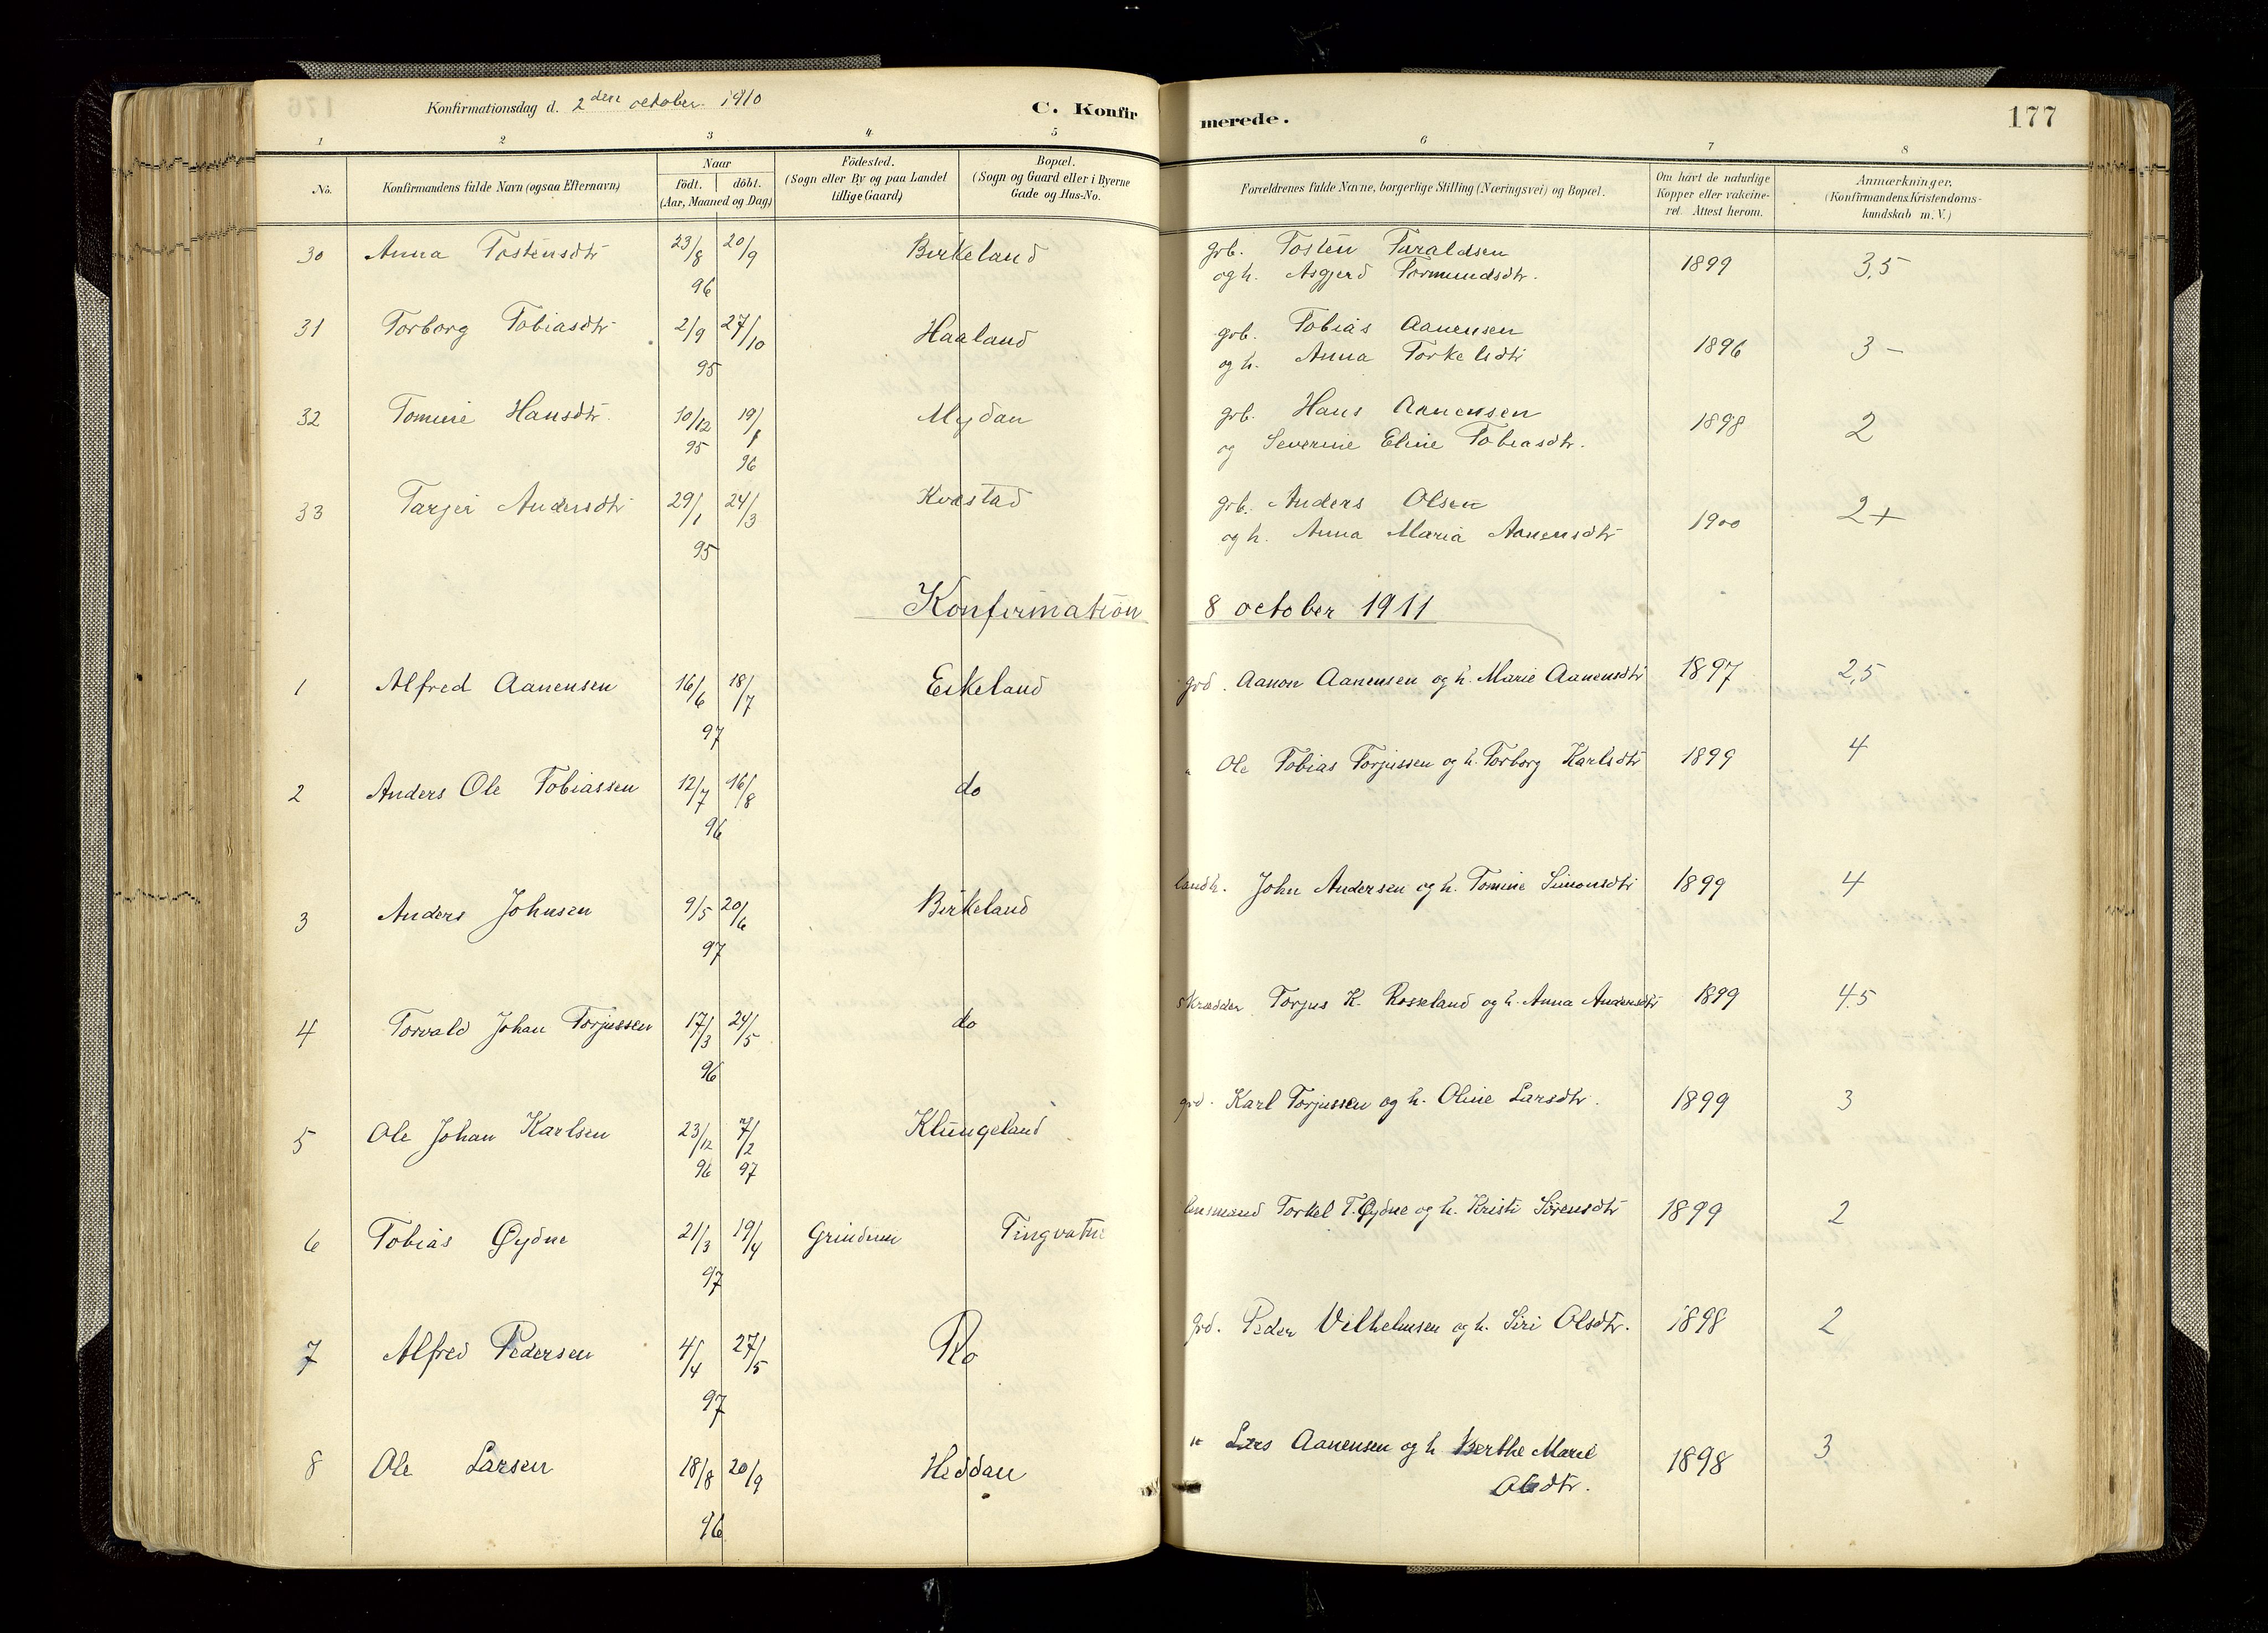 Konfirmationsdag d. 2den october 1910
C. Konfirmerede.
177
1 2 3 4 5 6 7 8
No. Konfirmandens fulde Navn (ogsaa Efternavn) Naar födt. döbt. (Aar, Maaned og Dag) Födested. (Sogn eller By og paa Landet tillige Gaard) Bopæl. (Sogn og Gaard eller i Byerne Gade og Hus-No. Forældrenes fulde Navne, borgerlige Stilling (Næringsvei) og Bopæl. Om havt de naturlige Kopper eller vakcineret. Attest herom. Anmærkninger. (Konfirmandens Kristendomskundskab m. V.)
30 Anna Tostensdtr 23/8 20/9 Birkeland grb. Tosten Taraldsen 1899 3,5
96 og h. Asgjerd Tormundsdtr.
31 Torborg Tobiasdtr 2/9 27/10 Haaland grb. Tobias Aanensen 1896 3 -
95 og h. Anna Torkelsdtr
32 Tomine Hansdtr. 10/12 19/1 Mydan grb. Hans Aanensen 1898 2
95 96 og Severine Eline Tobiasdtr.
33 Tarjer Andersdtr 29/1 24/3 Kvæstad grb. Anders Olsen 1900 2+
95 og h. Anna Maria Aanensdtr
Konfirmation 8 october 1911
1 Alfred Aanensen 16/6 18/7 Eikeland grd. Aanon Aanensen og h. Marie Aanensdtr 1897 2,5
97
2 Anders Ole Tobiassen 12/7 16/8 do " Ole Tobias Torjussen og h. Torborg Karlsdtr 1899 4
96
3 Anders Johnsen 9/5 20/6 Birkeland landh. John Andersen og h. Tomine Simonsdtr 1899 4
97
4 Torvald Johan Torjussen 17/3 24/5 do skrædder Torjus K. Rosseland og h. Anna Andersdtr 1899 4.5
96
5 Ole Johan Karlsen 23/12 7/2 Klungeland grd. Karl Torjussen og h. Oline Larsdtr. 1899 3
96 97
6 Tobias Øydne 21/3 19/4 Grindum Tingvatn lensmand Torkel T. Øydne og h. Kristi Sörensdtr 1899 2
97
7 Alfred Pedersen 4/4 27/5 Ro grd. Peder Vilhelmsen og h. Siri Olsdtr. 1898 2
97
8 Ole Larsen 18/8 20/9 Heddan " Lars Aanensen og h Berthe Marie 1898 3
96 Olsdtr.